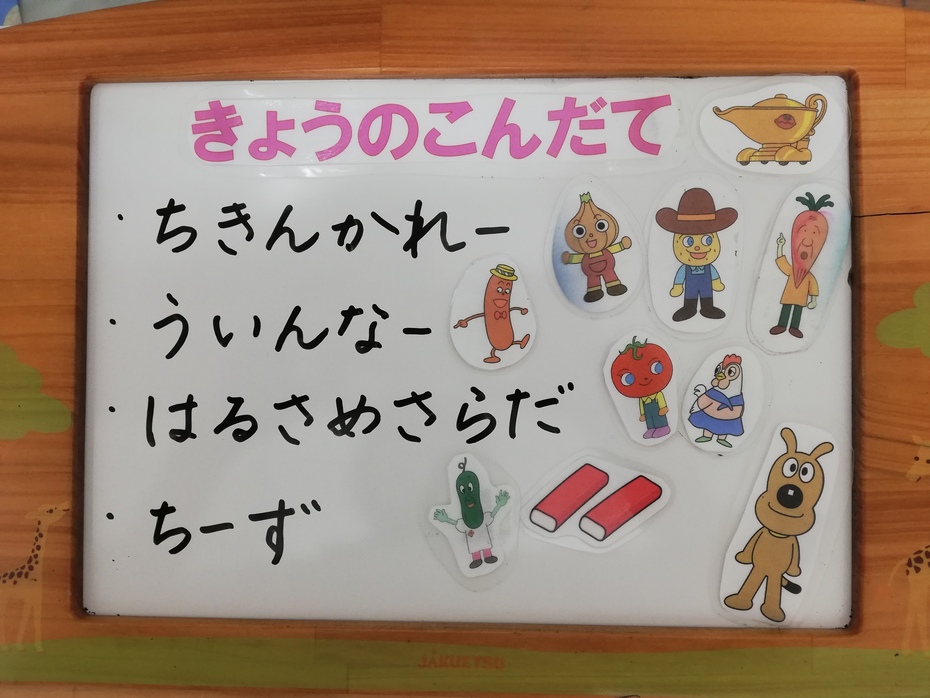 きょうのこんだて
・ちきんかれー
・ういんなー
・はるさめさらだ
・ちーず
JAKUETSU